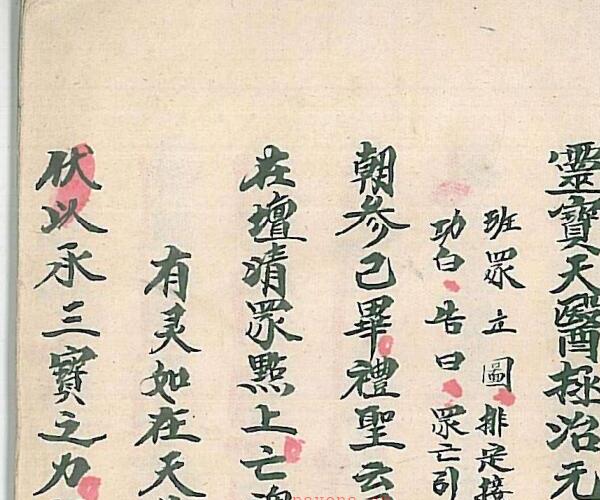 靈寶天醫拯治元
班眾立圖排定
功白告曰眾亡
朝參已畢禮聖云
在壇清眾點上亡
有灵如在天
伏以承三寶之力